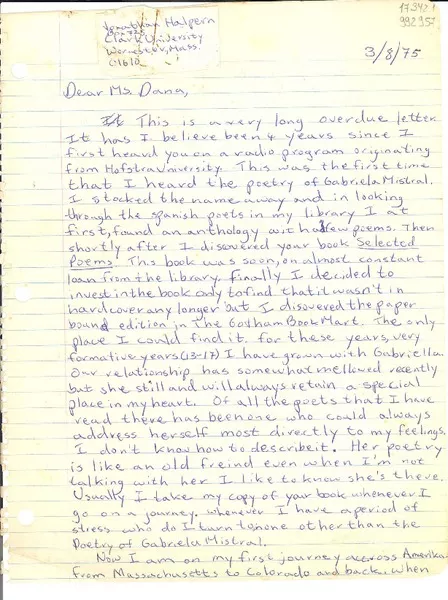 173421
992957
Jonathan Halpern
Box
Clark University
Worcester, Mass.
01610
3/8/75
Dear Ms. Dana,
It This is a very long overdue letter
It has I believe been 4 years since I
first heard you on a radio program originating
from Hofstra University. This was the first time
that I heard the poetry of Gabriela Mistral.
I stocked the name away and in looking
through the spanish poets in my library I at
first, found an anthology with a few poems. Then
shortly after I discovered your book Selected
Poems. This book was soon, on almost constant
loan from the library. finally I decided to
invest in the book only to find that it wasn't in
hardcover any longer but I disovered the paper
bound edition in The Gotham Book Mart. The only
place I could find it. for these years, very
formative years (13-17) I have grown with Gabriella.
Our relationship has somewhat mellowed recently
but she still and will always retain a special
place in my heart. Of all the poets that I have
read there has been one who could always
address herself most directly to my feelings.
I don't know how to describe it. Her poetry
is like an old freind even when I'm not
talking with her I like to know she's there.
Usually I take my copy of your book whenever I
go on a journey. whenever I have a period of
stress who do I turn to none other than the
Poetry of Gabriela Mistral.
Now I am on my first journey across Amerika
from Massachusetts to Colorado and back. when